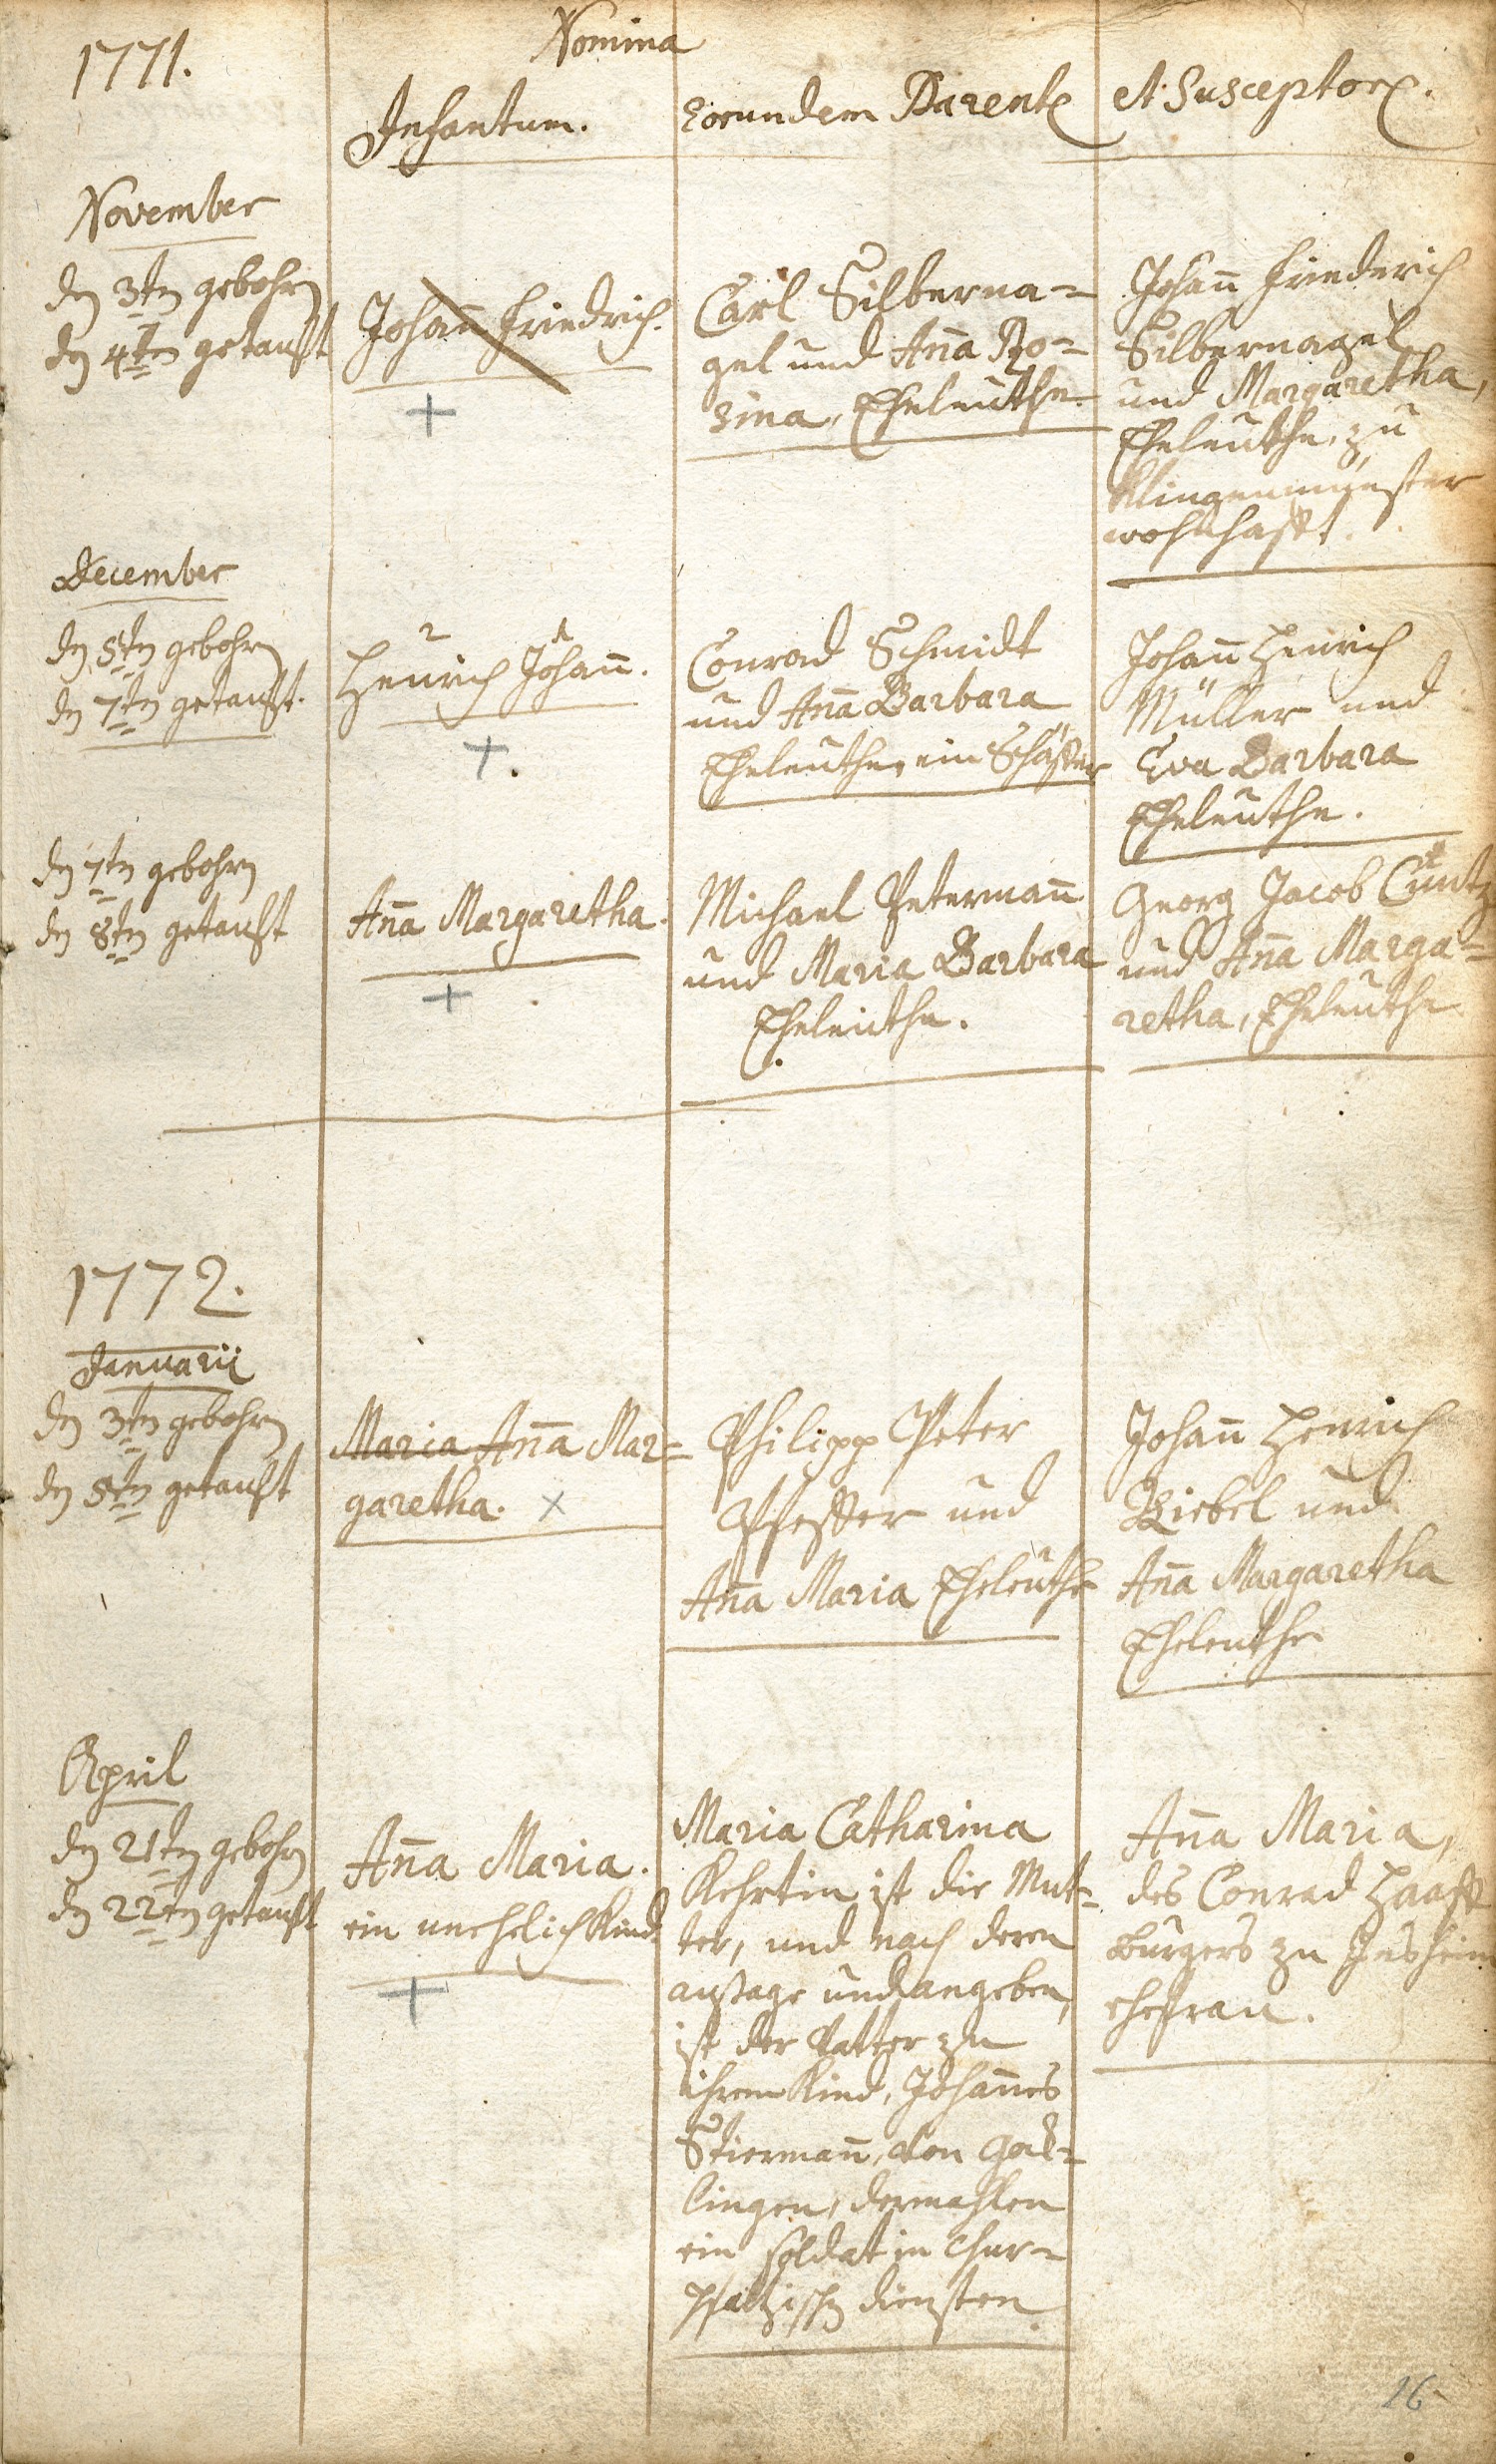 1771.
Nomina
Infantum.
Eorundem Parent.
et Susceptor.
November
den 3ten gebohren
den 4ten getauft
Johann Friedrich.
+
Carl Silberna=
gel und Anna Ro=
sina, Eheleuthe.
Johann Friederich
Silbernagel
und Margaretha,
Eheleuthe, zu
Klingenmünster
wohnhafft.
December
den 5ten gebohren
den 7ten getauft.
2 1
Henrich Johann.
+
Conrad Schmidt
und Anna Barbara
Eheleuthe, ein Schäffer
Johann Henrich
Müller und
Eva Barbara
Eheleuthe.
den 7ten gebohren
den 8ten getauft
Anna Margaretha.
+
Michael Petermann
und Maria Barbara
Eheleuthe.
Georg Jacob Cuntz
und Anna Marga=
retha, Eheleuthe
1772.
Januarii
den 3ten gebohren
den 5ten getauft
Maria Anna Mar=
garetha. x
Philipp Peter
Pfeffer und
Anna Maria Eheleuthe
Johann Henrich
Biebel und
Anna Margaretha
Eheleuthe
April
den 21ten gebohren
den 22ten getauft
Anna Maria.
ein unehelich Kind
+
Maria Catharina
Kehrtin ist die Mut=
ter, und nach deren
außage und angeben,
ist der Vatter zu
ihrem Kind, Johannes
Stiermann, von Göck=
lingen, dermahlen
ein soldat in Chur=
pfaltzischen diensten.
Anna Maria,
des Conrad Haafft
burgers zu Insheim
ehefrau.
26